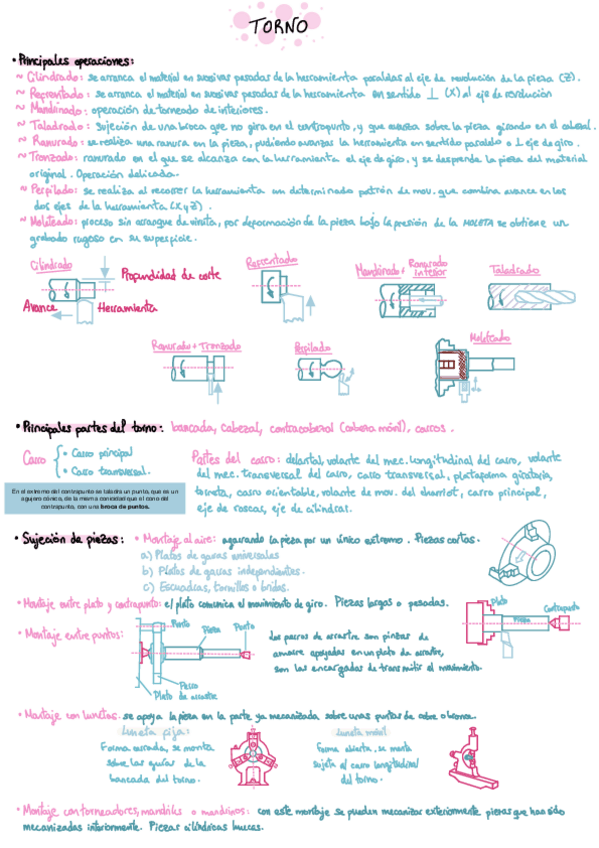 TORNO
• Principales operaciones:
~ Cilindrado: se arranca el material en sucesivas pasadas de la herramienta paralelas al eje de revolución de la pieza (Z).
~ Refrentado: se arranca el material en sucesivas pasadas de la herramienta en sentido ⊥ (X) al eje de revolución
~ Mandrinado: operación de torneado de interiores.
~ Taladrado: sujeción de una broca que no gira en el contrapunto, y que avanza sobre la pieza girando en el cabezal.
~ Ranurado: se realiza una ranura en la pieza, pudiendo avanzar la herramienta en sentido paralelo o ⊥ eje de giro.
~ Tronzado: ranurado en el que se alcanza con la herramienta el eje de giro, y se desprende la pieza del material
original. Operación delicada.
~ Perfilado: se realiza al recorrer la herramienta un determinado patrón de mov. que combina avance en los
dos ejes de la herramienta (X y Z).
~ Moleteado: proceso sin arranque de viruta, por deformación de la pieza bajo la presión de la MOLETA se obtiene un
grabado rugoso en su superficie.
Cilindrado
Profundidad de corte
Avance
Herramienta
Refrentado
Mandrinado + Ranurado interior
Taladrado
Ranurado + Tronzado
Perfilado
Moleteado
• Principales partes del torno: bancada, cabezal, contracabezal (cabeza móvil), carros.
Carro
• Carro principal
• Carro transversal.
Partes del carro: delantal, volante del mec. longitudinal del carro, volante
del mec. transversal del carro, carro transversal, plataforma giratoria,
torreta, carro orientable, volante de mov. del charriot, carro principal,
eje de roscas, eje de cilindrar.
En el extremo del contrapunto se taladra un punto, que es un
agujero cónico, de la misma conicidad que el cono del
contrapunto, con una broca de puntos.
• Sujeción de piezas:
• Montaje al aire: agarrando la pieza por un único extremo. Piezas cortas.
a) Platos de garras universales
b) Platos de garras independientes.
c) Escuadras, tornillos o bridas.
• Montaje entre plato y contrapunto: el plato comunica el movimiento de giro. Piezas largas o pesadas.
Plato
Pieza
Contrapunto
• Montaje entre puntos:
Punto
Pieza
Punto
Perro
Plato de arrastre
Los perros de arrastre son piezas de
amarre apoyadas en un plato de arrastre,
son las encargadas de transmitir el movimiento.
• Montaje con lunetas: se apoya la pieza en la parte ya mecanizada sobre unas puntas de cobre o bronce.
Luneta fija:
Forma cerrada, se monta
sobre las guías de la
bancada del torno.
Luneta móvil
Forma abierta, se monta
sujeta al carro longitudinal
del torno.
• Montaje con torneadores, mandriles o mandrinos: con este montaje se pueden mecanizar exteriormente piezas que han sido
mecanizadas interiormente. Piezas cilíndricas huecas.